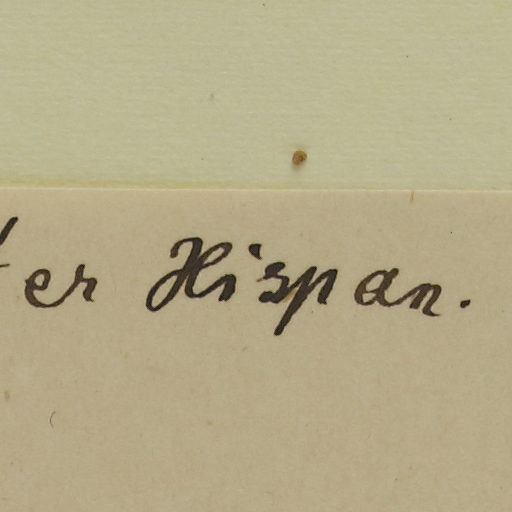 ter Hispan.